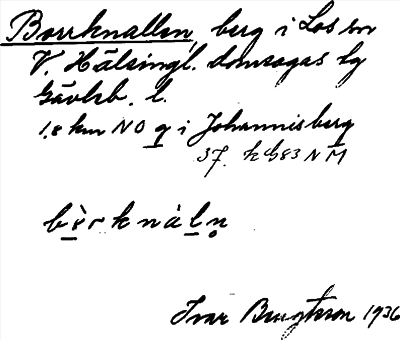 Borrknallen, berg i Los sn
V. Hälsingl. domsagas lg
Gävleb. l.
1.8 km NO g i Johannisberg
37. kb83 N M
bèrknàln̥
Ivar Bengtsson 1936